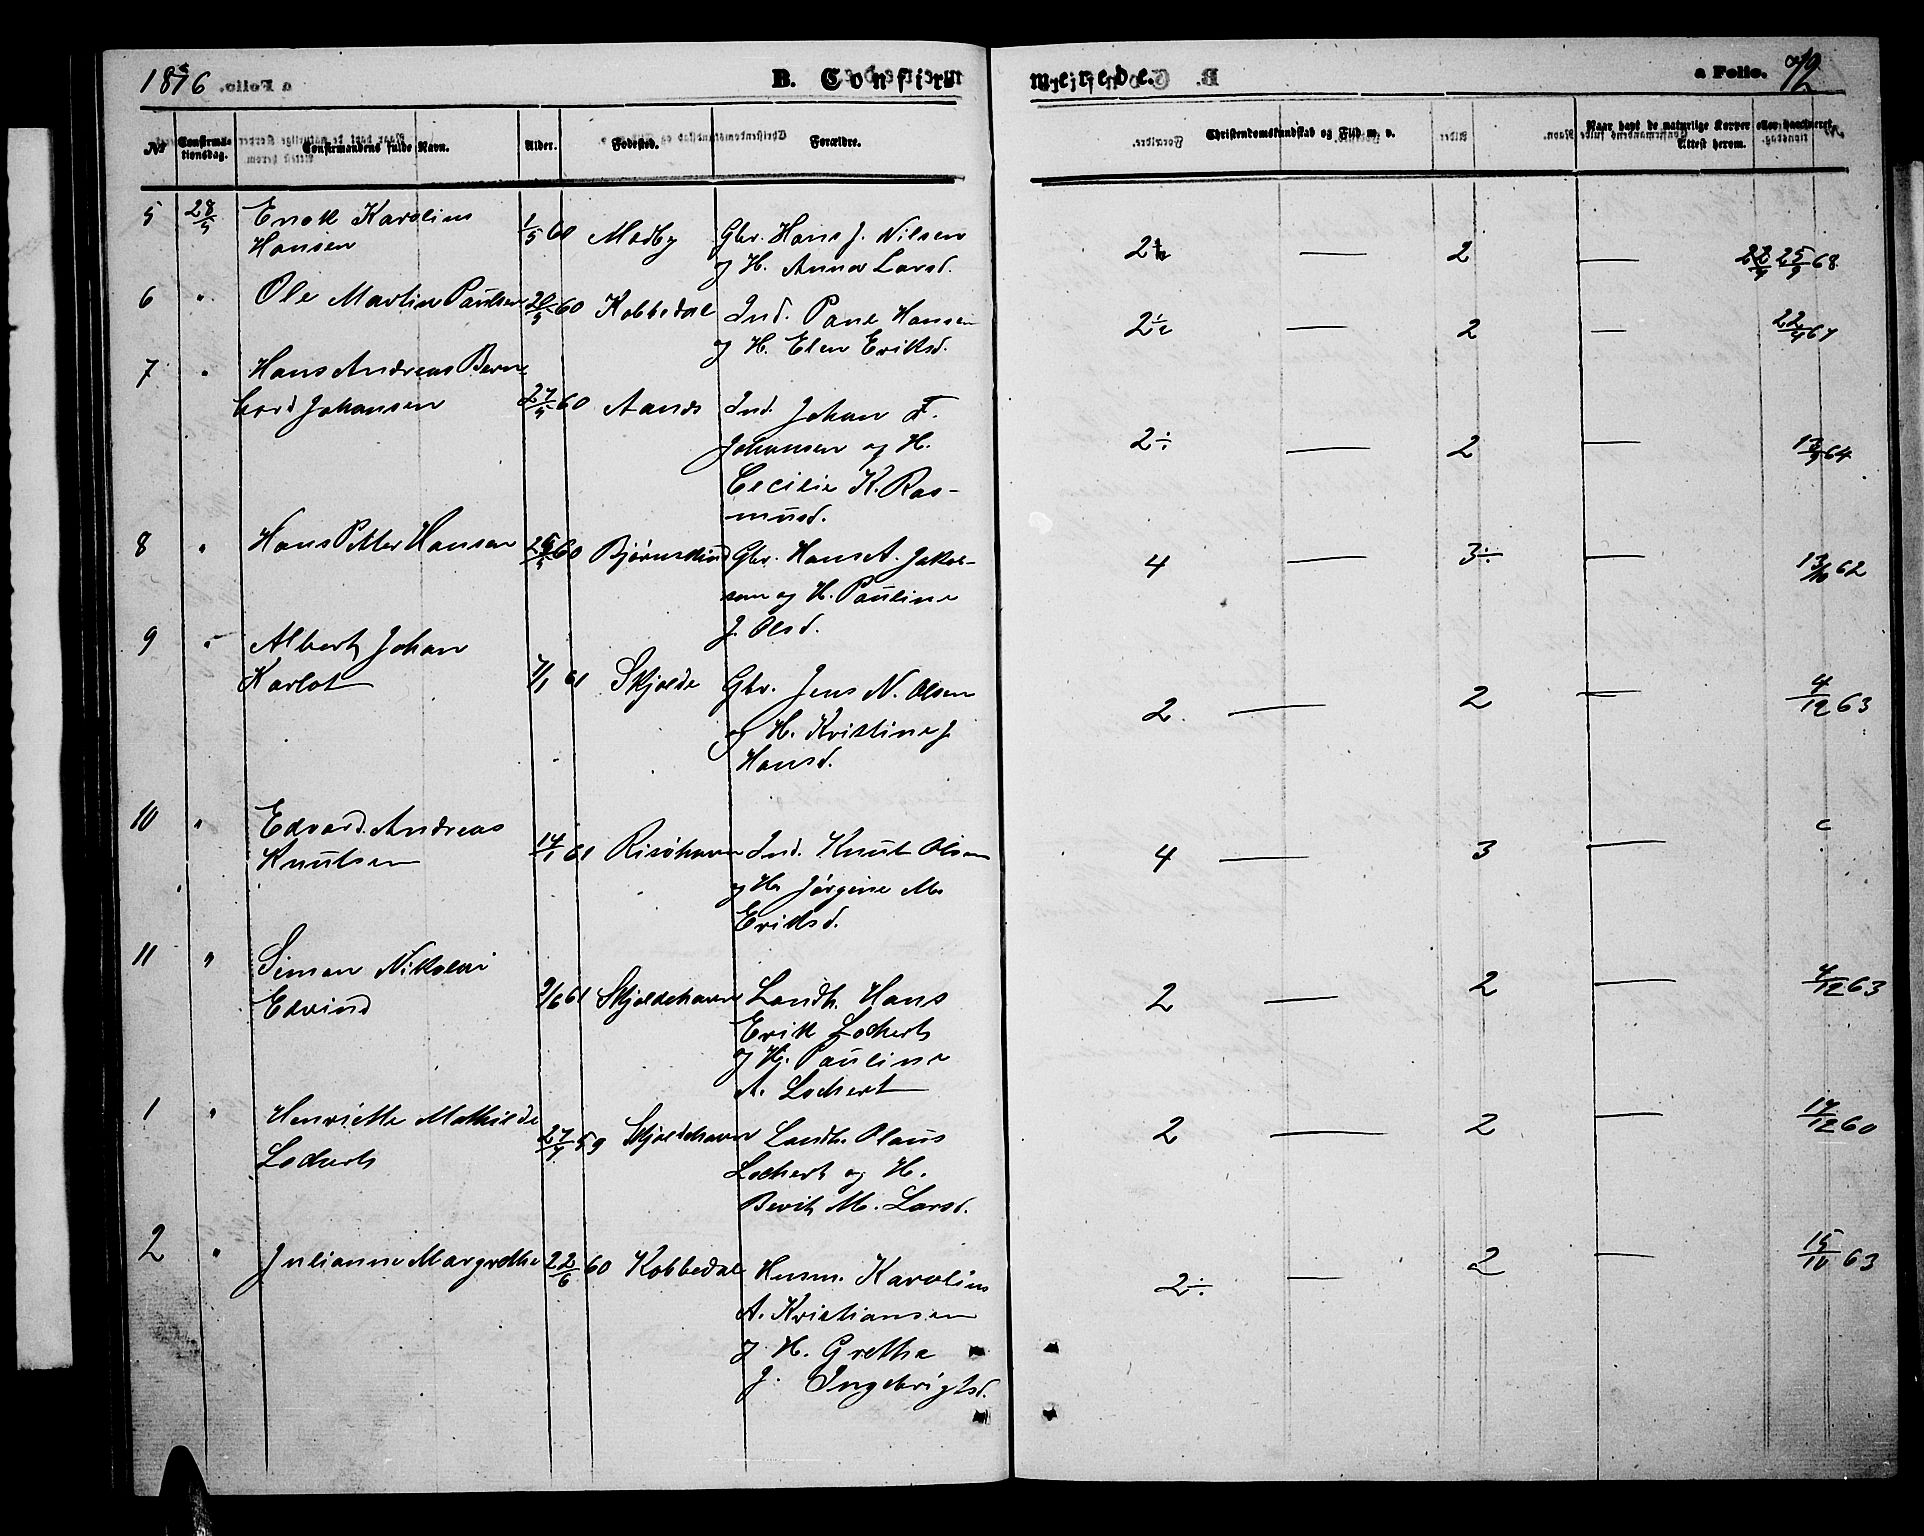 1876
B. Confirmerede.
a Folio. 72
No
Confirmationsdag.
Confirmandens fulde Navn.
Alder.
Fødested.
Forældre.
Christendomskundskab og Flid m. v.
Naar havt de naturlige Kopper eller vaccineret. Attest herom.
5 28/5 Enok Karolius 1/5 60 Medby Gbr. Hans J. Nilsen 2 — 2 — 25/9 68
Hansen og H. Anna Larsd.
6 " Ole Martin Paulsen 20/5 60 Kobbedal Ind. Pane Hansen 2 — 2 — 22/9 67
og H. Elen Eriksd.
7 " Hans Andreas Bern
hard Johansen 27/5 60 Aanes Ind. Johan F. 2÷ — 2 — 13/9 64
Johansen og H.
Cecilie K. Ras-
musd.
8 " Hans Petter Hansen 26/5 60 Bjørnskind Gbr. Hans A. Jakob- 4 — 3÷ — 13/10 62
sen og H. Pauline
J. Olsd.
9 " Albert Johan
Karlot 7/1 61 Skjolde Gbr. Jens N. Olsen 2. — 2 — 4/12 63
og H. Kristine J.
Hansd.
10 " Edvard Andreas
Knutsen 14/1 61 Risøhavn Ind. Knut Olsen 4 — 3 —
og H. Jørgine M.
Eriksd.
11 " Simon Nikolai
Edvind 9/6 61 Skjoldehavn Landh. Hans 2 — 2 — 4/12 63
Erik Lochert
og H. Pauline
A. Lochert
1 " Henriette Mathilde
Lochert 27/7 59 Skjoldehavn Landh. Olaus 2 — 2 — 17/12 60
Lochert og H.
Berit M. Larsd.
2 " Julianne Margrethe 22/6 60 Kobbedal Husm. Karolius 2÷ — 2 — 15/10 63
A. Kristiansen
og H. Grethe
J. Ingebrigtsd.